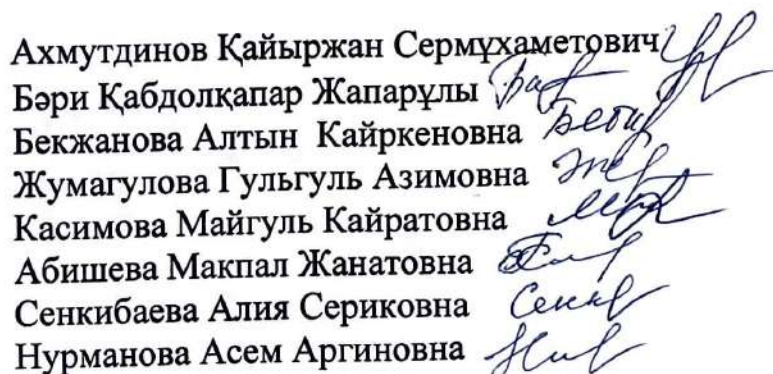 Ахмутдинов Қайыржан Сермұхаметович
Бәри Қабдолқапар Жапарұлы
Бекжанова Алтын Кайркеновна
Жумагулова Гульгуль Азимовна
Касимова Майгуль Кайратовна
Абишева Макпал Жанатовна
Сенкибаева Алия Сериковна
Нурманова Асем Аргиновна